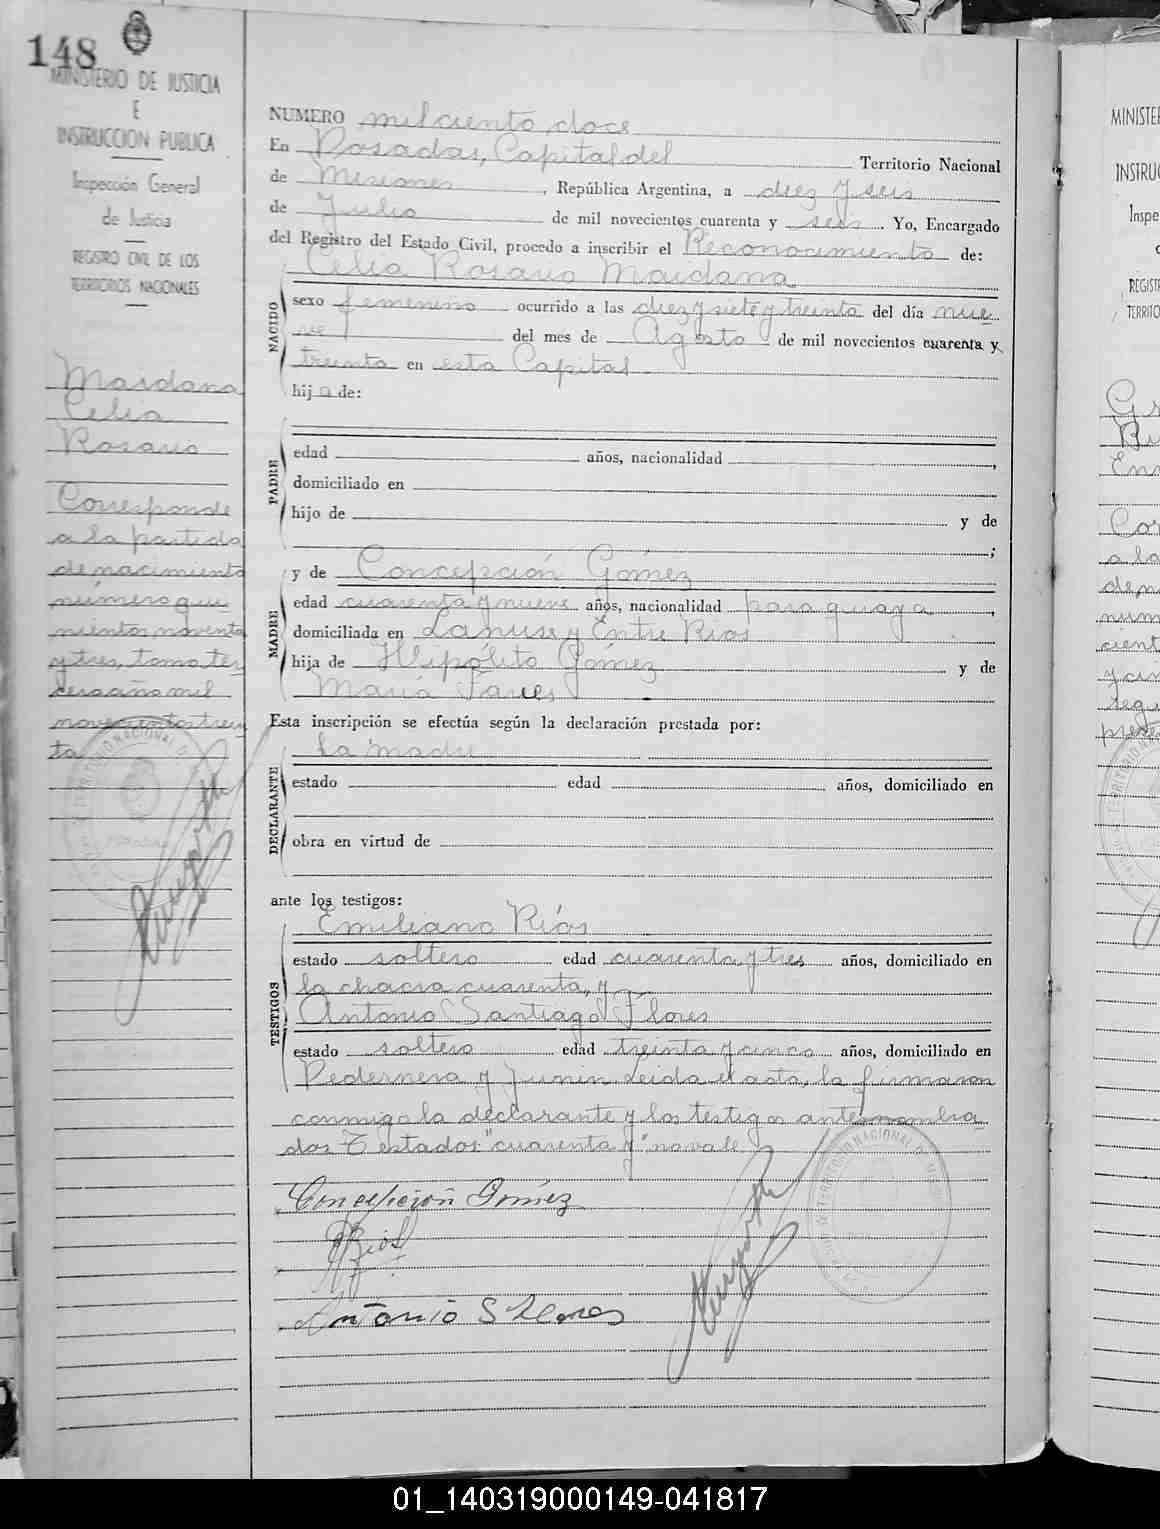 148
MINISTERIO DE JUSTICIA
E
INSTRUCCION PUBLICA
Inspección General
de Justicia
REGISTRO CIVIL DE LOS
TERRITORIOS NACIONALES
Maidana
Celia
Rosario
Corresponde
a la partida
de nacimiento
número qui
nientos noventa
y tres, tomo ter
cero año mil
novecientos trein
ta
NUMERO mil ciento doce
En Posadas, Capital del Territorio Nacional
de Misiones, República Argentina, a diez y seis
de Julio de mil novecientos cuarenta y seis. Yo, Encargado
del Registro del Estado Civil, procedo a inscribir el Reconocimiento de:
Celia Rosario Maidana
NACIDO
sexo femenino ocurrido a las diez y siete y treinta del día nue
ve del mes de Agosto de mil novecientos cuarenta y
treinta en esta Capital
hija de:
PADRE
edad años, nacionalidad ,
domiciliado en
hijo de y de
;
MADRE
y de Concepción Gómez
edad cuarenta y nueve años, nacionalidad paraguaya,
domiciliada en Lanuse y Entre Rios
hija de Hipólito Gómez y de
María
Esta inscripción se efectúa según la declaración prestada por:
la madre
DECLARANTE
estado edad años, domiciliado en
obra en virtud de
ante los testigos:
Emiliano Ríos
TESTIGOS
estado soltero edad cuarenta y tres años, domiciliado en
la chacra cuarenta, y
Antonio Santiago Flores
estado soltero edad treinta y cinco años, domiciliado en
Pedernera y Junin Leida el acta, la firmaron
conmigo la declarante y los testigos antes nombra
dos Testados "cuarenta y" no vale
Concepción Gomez
Rios
Antonio S Flores
TERRITORIO NACIONAL D
TERRITORIO NACIONAL DE
MINISTE
INSTRU
Inspe
REGIST
TERRITO
01_140319000149-041817